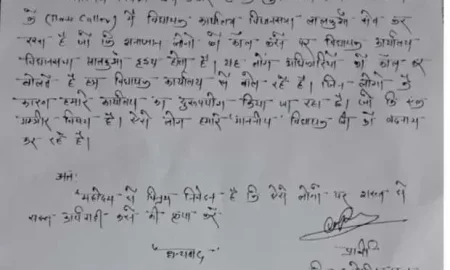 के (True Caller) में विधायक कार्यालय विधानसभा लालकुआँ सेव कर
रखा है जो कि अनजान लोगों को कॉल करने पर विधायक कार्यालय
विधानसभा लालकुआँ दृश्य होता है। यह लोग अधिकारियों को कॉल कर
बोलते हैं हम विधायक कार्यालय से बोल रहे हैं। जिन लोगों के
कारण हमारे कार्यालय का दुरुपयोग किया जा रहा है। जो कि एक
गम्भीर विषय है। ऐसे लोग हमारे माननीय विधायक जी को बदनाम
कर रहे हैं।
अतः
महोदय से विनम्र निवेदन है कि ऐसे लोगों पर सख्त से
सख्त कार्यवाही करने की कृपा करें
"धन्यवाद"
प्रार्थी